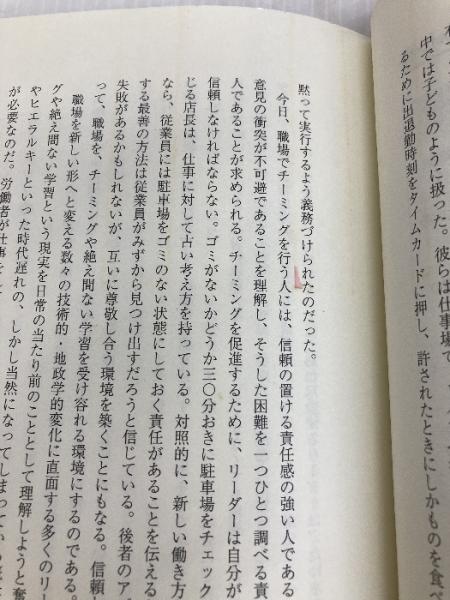 中では子どものように扱った。彼らは仕事場で
るために出退勤時刻をタイムカードに押し、許されたときにしかものを食べ
黙って実行するよう義務づけられたのだった。
今日、職場でチーミングを行う人には、信頼の置ける責任感の強い人である
意見の衝突が不可避であることを理解し、そうした困難を一つひとつ調べる責
人であることが求められる。チーミングを促進するために、リーダーは自分が
信頼しなければならない。ゴミがないかどうか三〇分おきに駐車場をチェック
じる店長は、仕事に対して古い考え方を持っている。対照的に、新しい働き方
なら、従業員には駐車場をゴミのない状態にしておく責任があることを伝える
する最善の方法は従業員がみずから見つけ出すだろうと信じている。後者のア
失敗があるかもしれないが、互いに尊敬し合う環境を築くことにもなる。信頼し
って、職場を、チーミングや絶え間ない学習を受け容れる環境にするのである。
職場を新しい形へと変える数々の技術的・地政学的変化に直面する多くのリー
グや絶え間ない学習という現実を日常の当たり前のこととして理解しようと奮
やヒエラルキーといった時代遅れの、しかし当然になってしまっている
が必要なのだ。労働者が仕事を